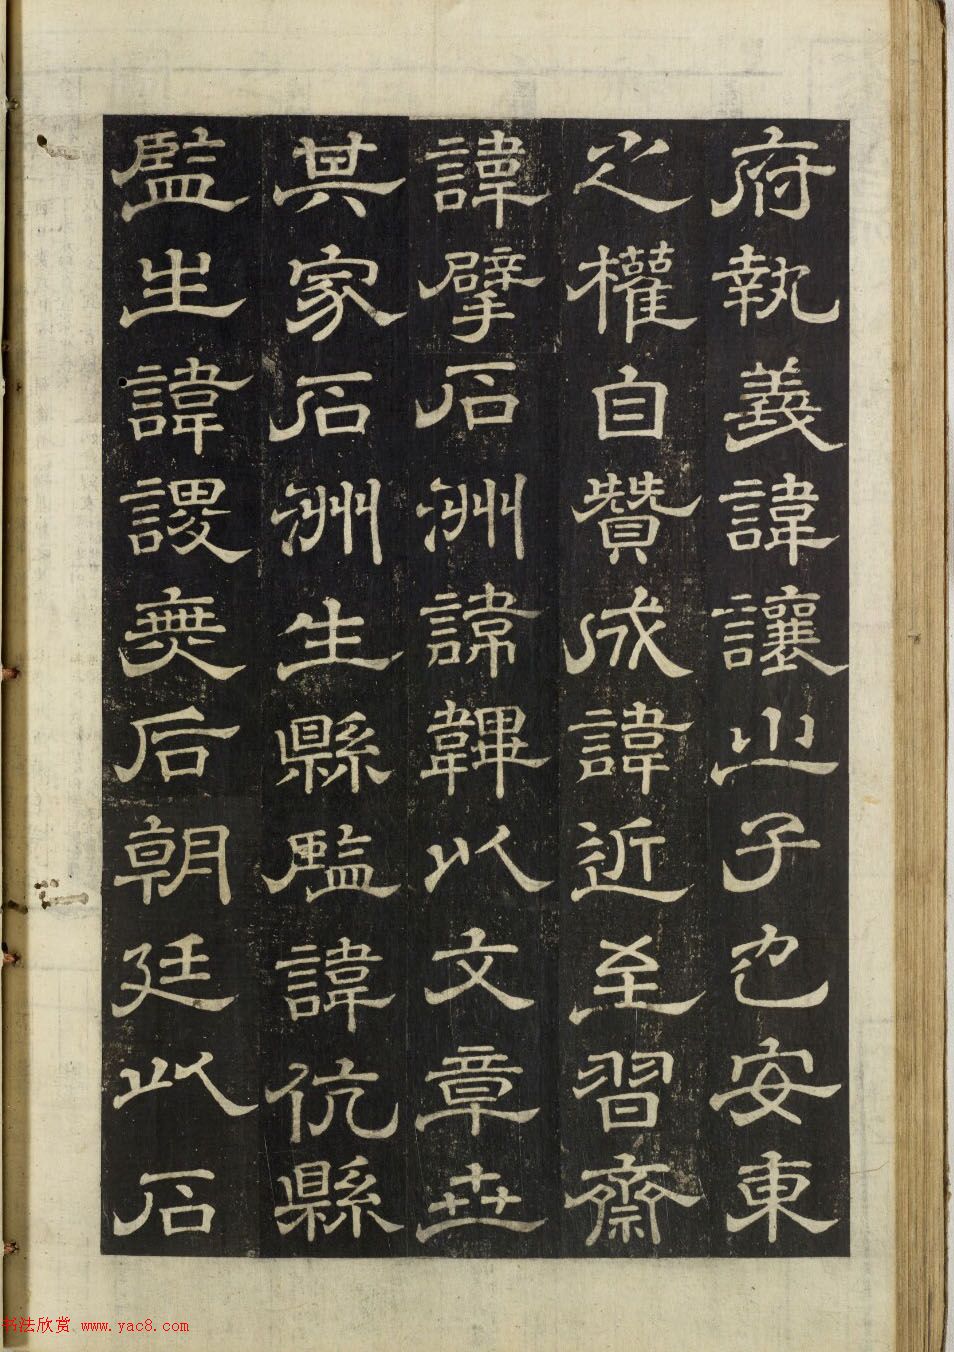 府執義諱讓小子也安東
之權自贊成諱近至習齋
諱擘石洲諱韠以文章世
其家石洲生縣監諱伉縣
監生諱謖無后朝廷以石
书法欣赏 www.yac8.com